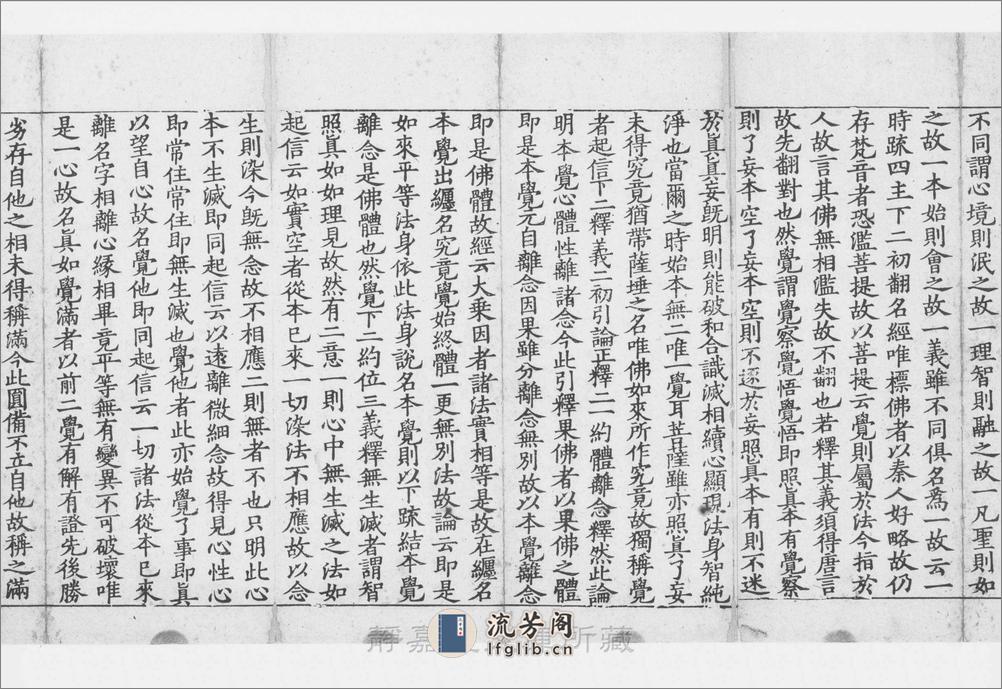 不同謂心境則泯之故一理智則融之故一凡聖則如
之故一本始則會之故一義雖不同俱名為一故云一
時疏四主下二初翻名經唯標佛者以秦人好略故仍
存梵音者恐濫菩提故以菩提云覺則屬於法今指於
人故言其佛無相濫失故不翻也若釋其義須得唐言
故先翻對也然覺謂覺察覺悟覺悟即照真本有覺察
則了妄本空了妄本空則不逐於妄照真本有則不迷
於真真妄既明則能破和合識滅相續心顯現法身智純
淨也當爾之時始本無二唯一覺耳菩薩雖亦照真了妄
未得究竟猶帶薩埵之名唯佛如來所作究竟故獨稱覺
者起信下二釋義二初引論正釋二一約體離念釋然此論
明本覺心體性離諸念今此引釋果佛者以果佛之體
即是本覺元自離念因果雖分離念無別故以本覺離念
即是佛體故經云大乘因者諸法實相等是故在纏名
本覺出纏名究竟覺始終體一更無別法故論云即是
如來平等法身依此法身說名本覺則以下疏結本覺
離念是佛體也然覺下二約位三義釋無生滅者謂智
照真如如理見故然有二意一則心中無生滅之法如
起信云如實空者從本已來一切染法不相應故以念
生則染今既無念故不相應二則無者不也只明此心
本不生滅即同起信云以遠離微細念故得見心性心
即常住常住即無生滅也覺他者此亦始覺了事即真
以望自心故名覺他即同起信云一切諸法從本已來
離名字相離心緣相畢竟平等無有變異不可破壞唯
是一心故名真如覺滿者以前二覺有解有證先後勝
劣存自他之相未得稱滿今此圓備不立自他故稱之滿
靜嘉 所藏
流芳阁
lfglib.cn